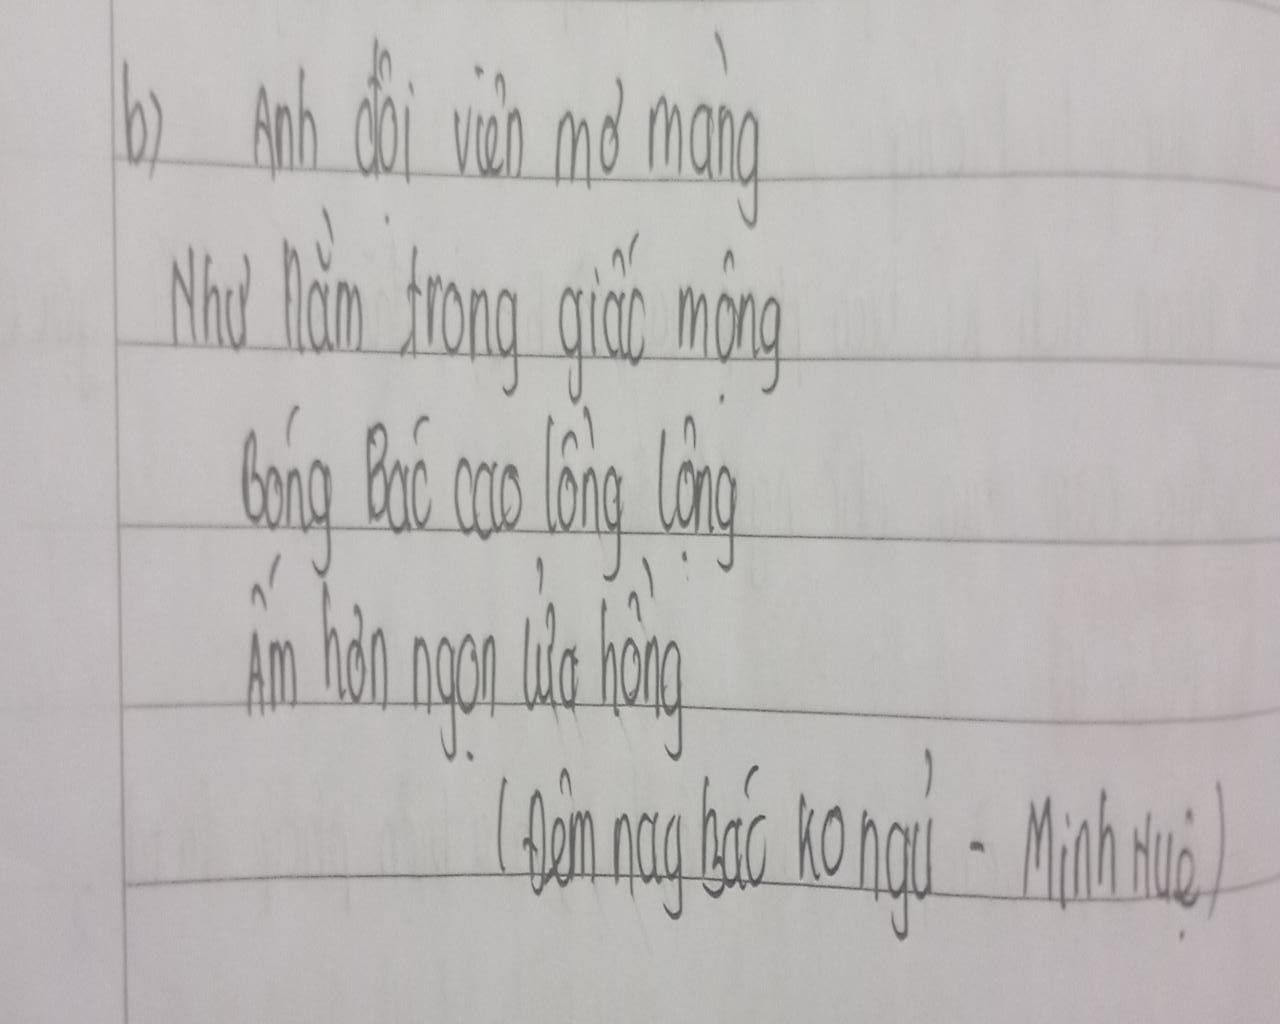 b) Anh đội viên mơ màng
Như nằm trong giấc mộng
Bóng Bác cao lồng lộng
Ấm hơn ngọn lửa hồng
(Đêm nay Bác ko ngủ - Minh Huệ)